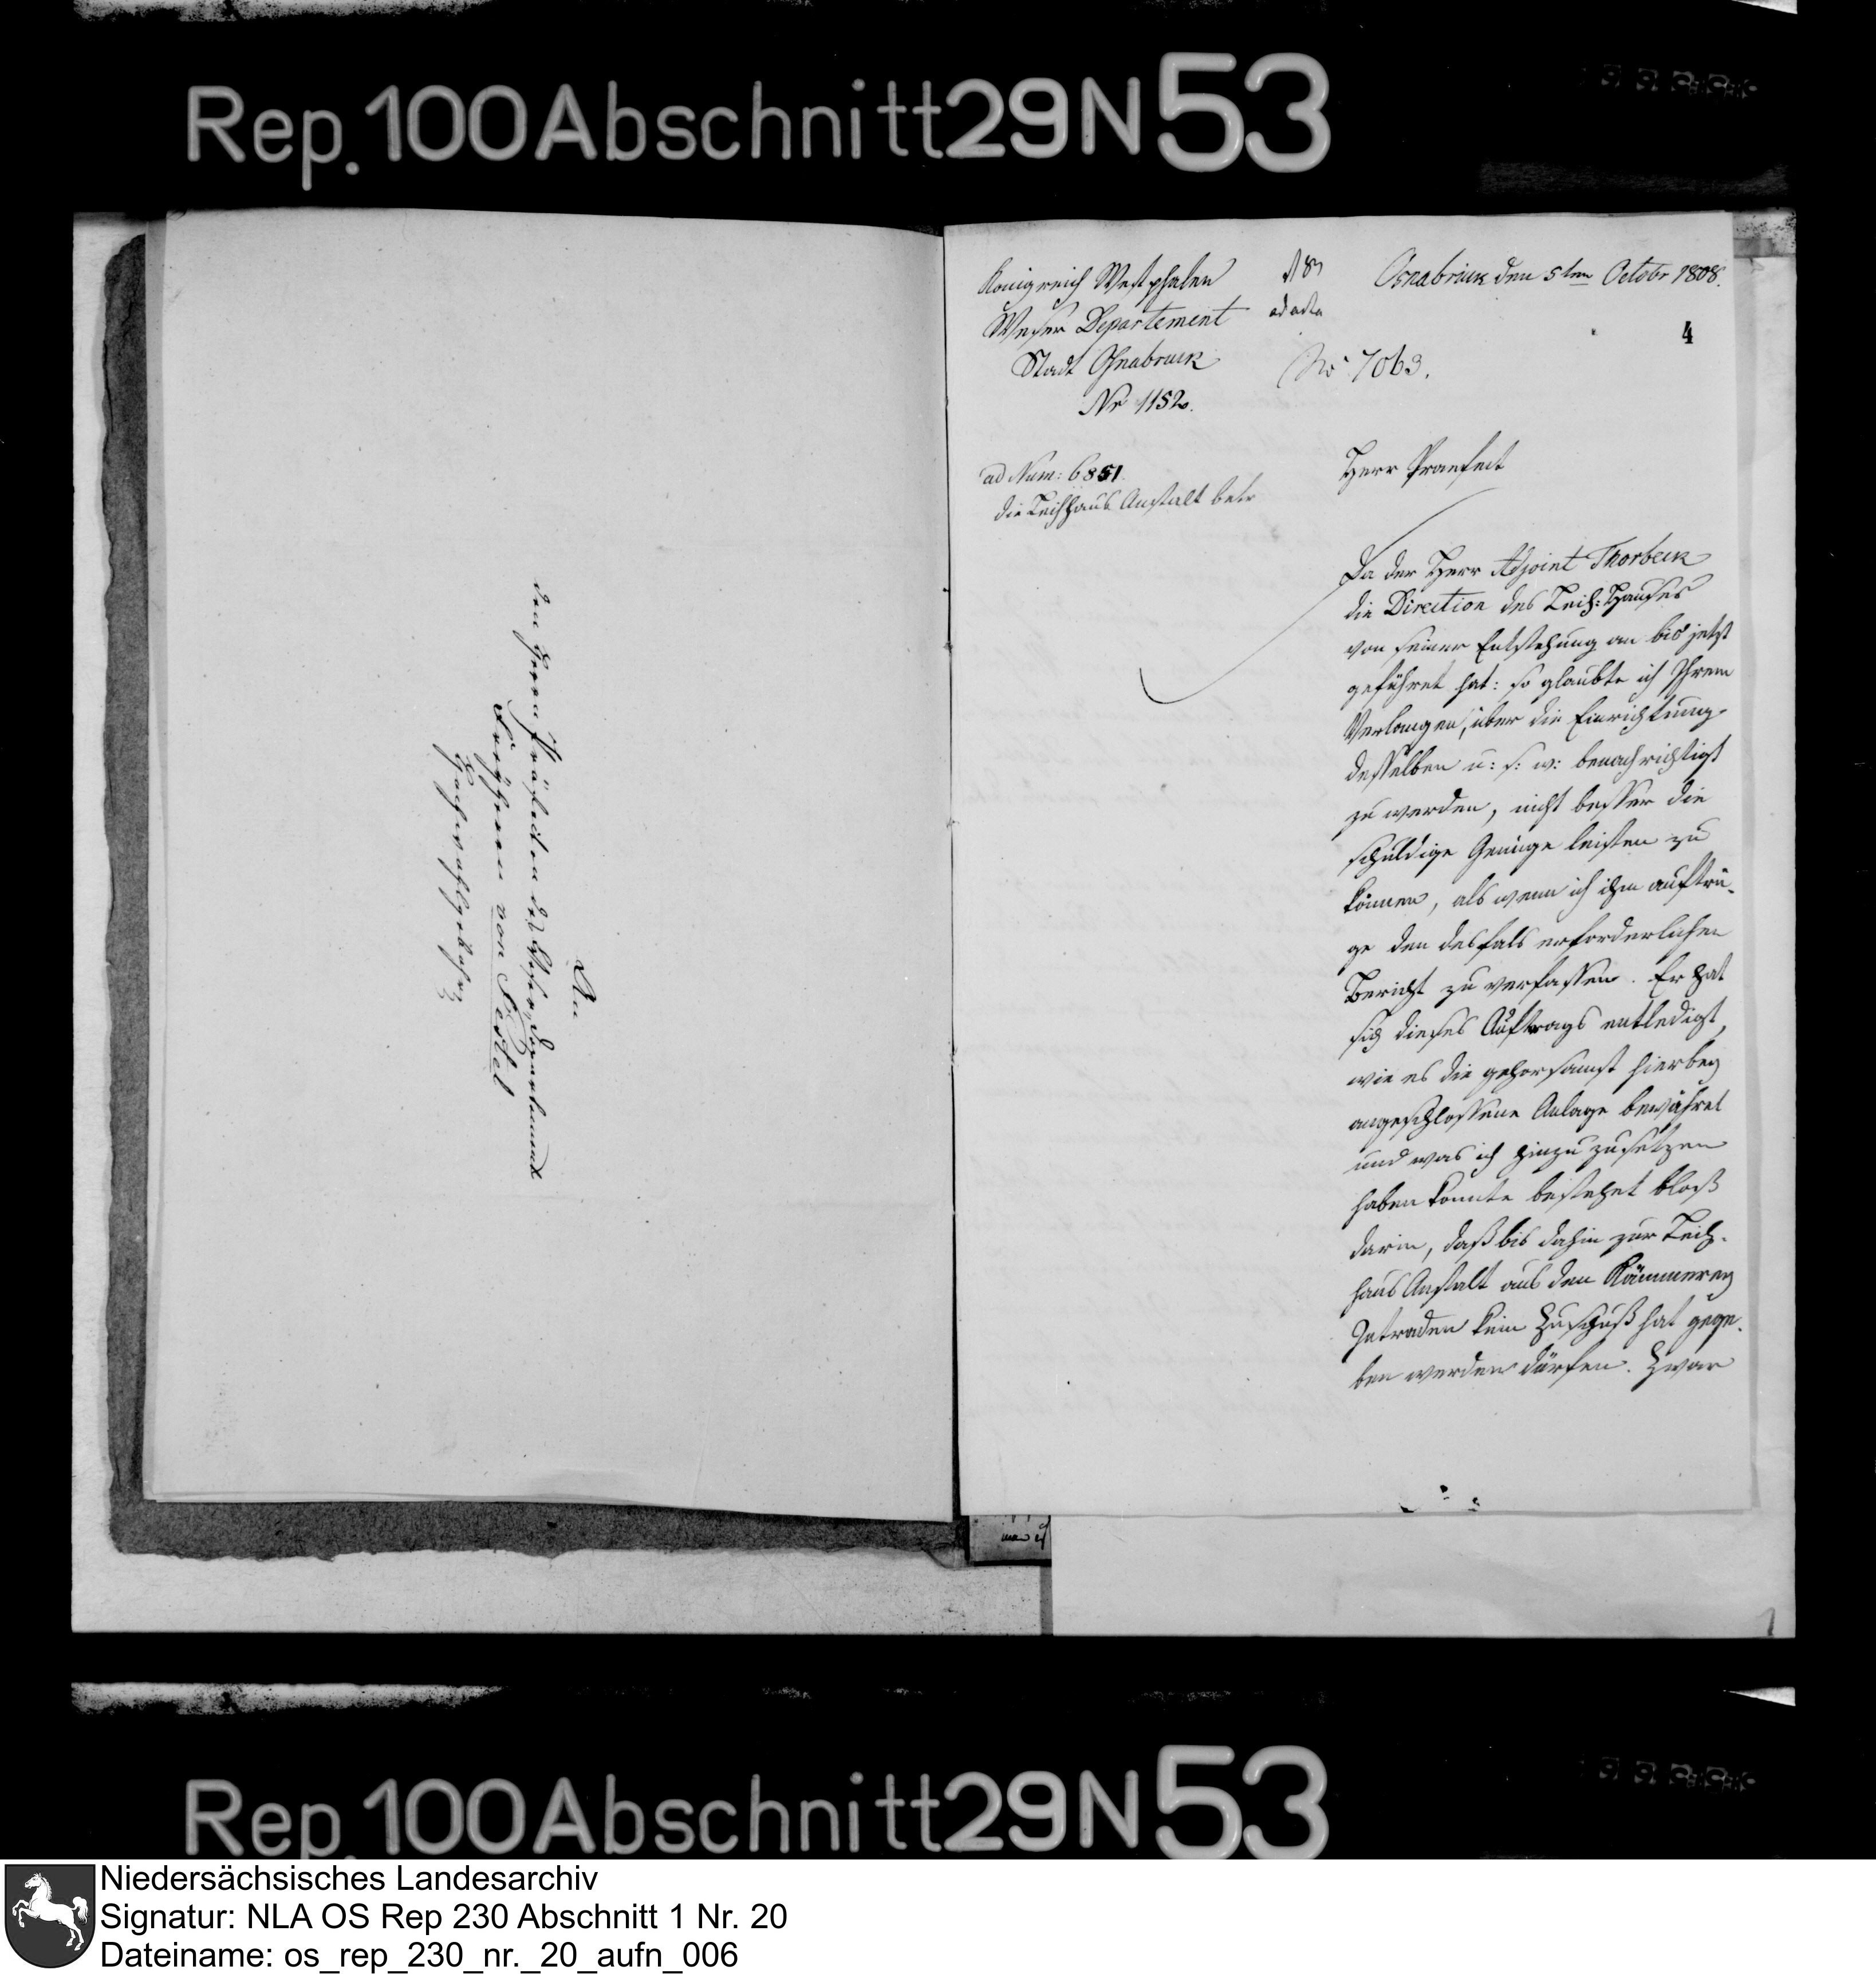 Rep. 100 Abschnitt 29 N 53
An
den Herrn Präfecten des Weser-Departements
Freyherrn von Pestel
Hochwohlgebohren
Königreich Westphalen
Weser Departement
Stadt Osnabruck
Nr 1152.
ad acta
Osnabruck den 5ten Octobr 1808.
4
No 7063.
ad Num: 6851.
die Leihhaus Anstalt betr
Herr Praefect
Da der Herr Adjoint Thorbeck
die Direction des Leih-Hauses
von seiner Entstehung an bis jetzt
geführet hat: so glaubte ich Ihrem
Verlangen, über die Einrichtung
desselben u: s: w: benachrichtigt
zu werden, nicht besser die
schuldige Genüge leisten zu
können, als wenn ich ihm auftrü-
ge den desfals erforderlichen
Bericht zu verfassen. Er hat
sich dieses Auftrags entledigt,
wie es die gehorsamst hierbey
angeschlossene Anlage bewähret
und was ich hinzu zu setzen
haben konnte bestehet bloß
darin, daß bis dahin zur Leih-
haus Anstalt aus den Kämmerey
Intraden kein Zuschuß hat gege-
ben werden dürfen. Zwar
Rep. 100 Abschnitt 29 N 53
Niedersächsisches Landesarchiv
Signatur: NLA OS Rep 230 Abschnitt 1 Nr. 20
Dateiname: os_rep_230_nr._20_aufn_006